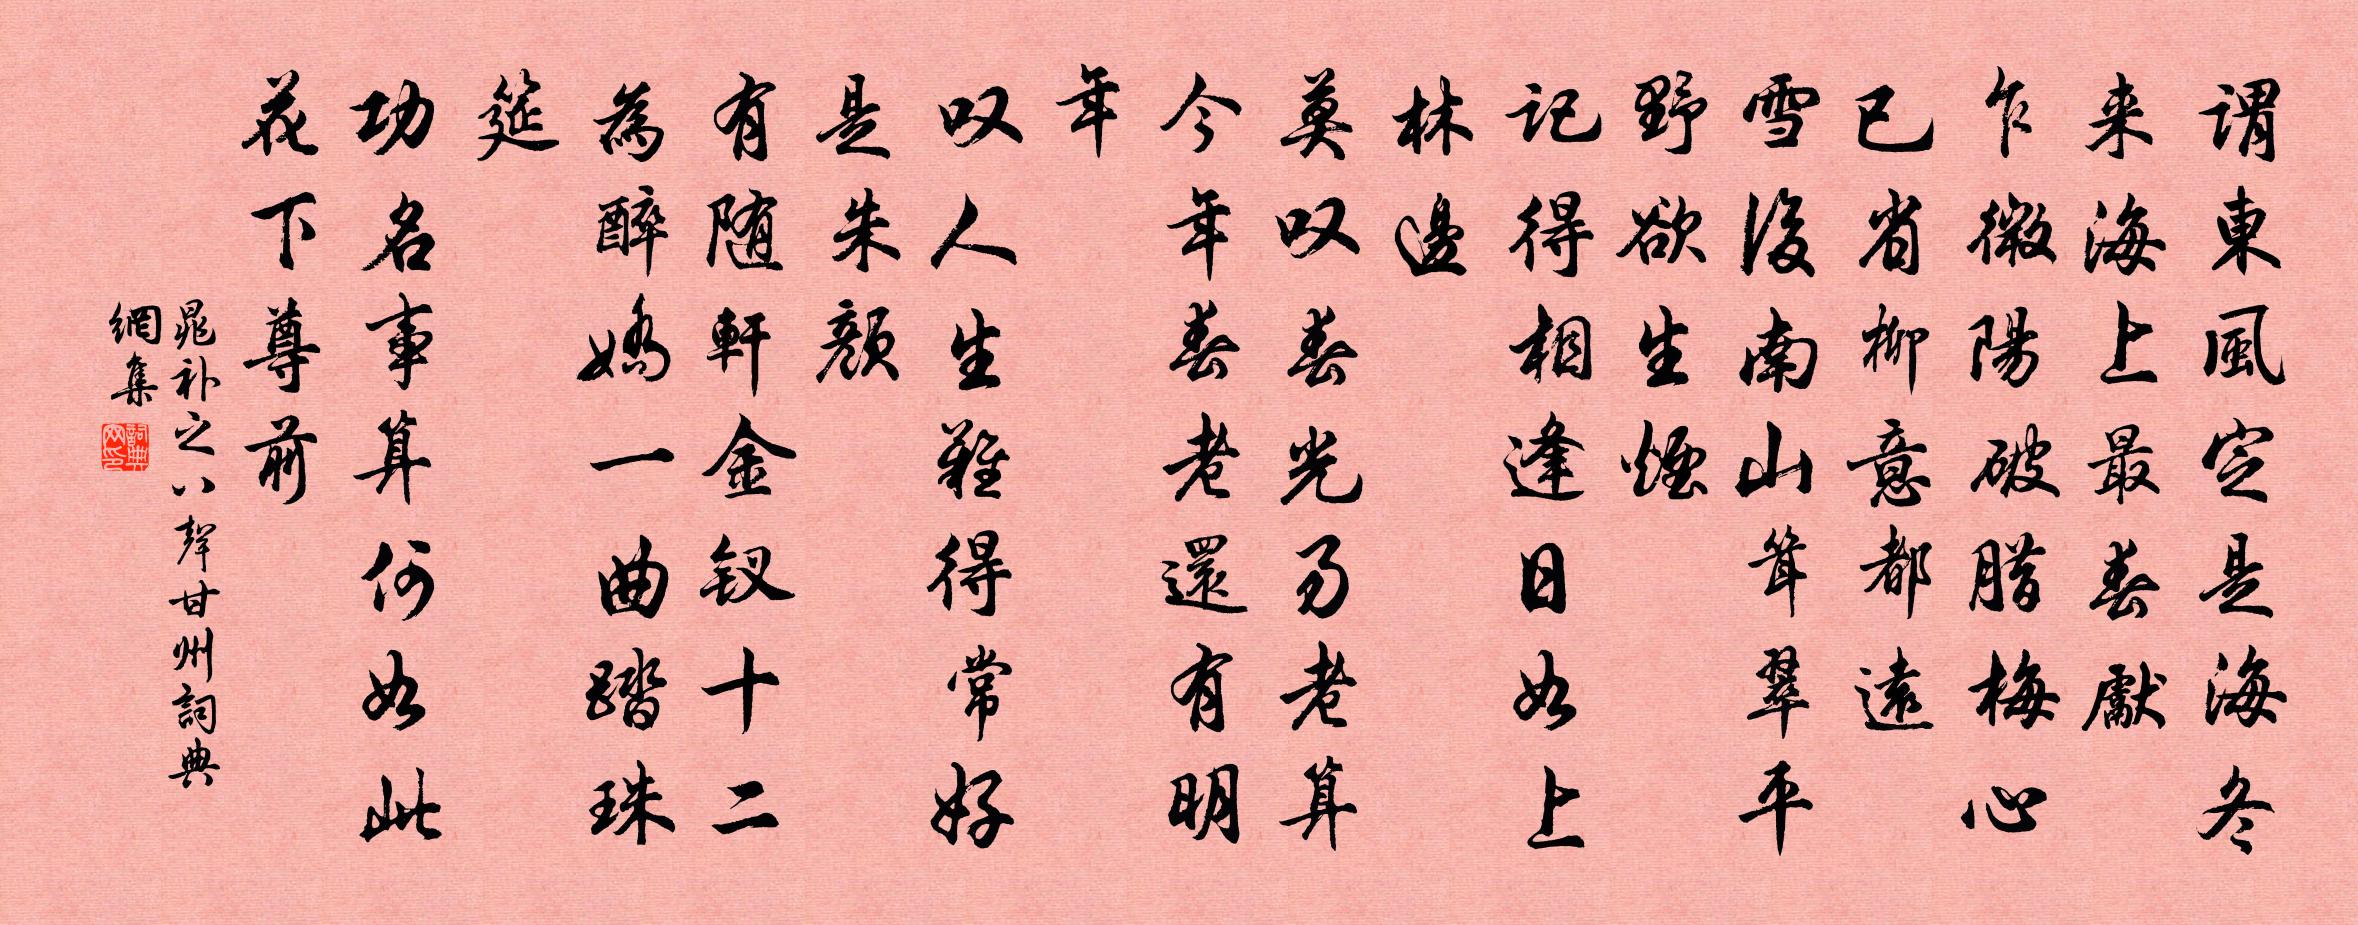 謂東風定是海冬
来海上最春獻
乍微陽破腊梅心
已省柳意都遠
雪後南山耸翠平
野欲生煙
记得相逢日如上
林邊
莫叹春光易老算
今年春老還有明
年
叹人生難得常好
是朱顏
有随軒金钗十二
為醉嬌一曲踏珠
筵
功名事算何如此
花下尊前
晁补之八聲甘州詞典
網集
詞典网印